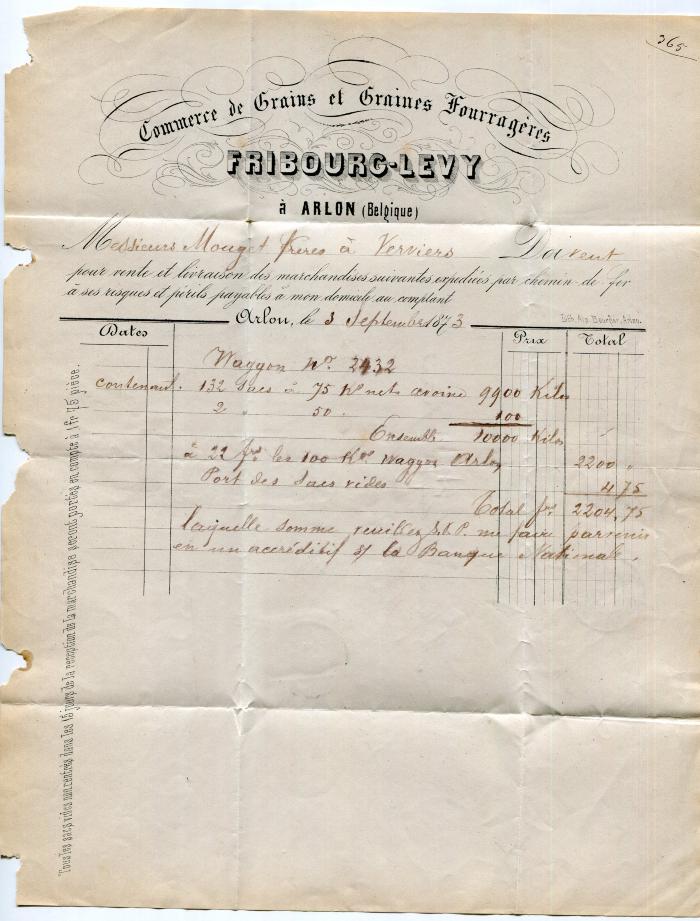 365
Commerce de Grains et Graines Fourragères
FRIBOURG-LEVY
à ARLON (Belgique)
Messieurs Mouget frères à Verviers Doivent
pour vente et livraison des marchandises suivantes expédiées par chemin de fer
à ses risques et périls payables à mon domicile au comptant
Arlon, le 3 Septembre 1873
Dates Prix Total
Waggon No. 2432
contenant. 132 Sacs à 75 Ko nets avoine 9900 Kilos
2 " 50 . 100
Ensemble 10000 Kilos
à 22 frs les 100 Kos Waggon Arlon 2200 "
Port des Sacs vides 4 75
Total frs 2204,75
laquelle somme veuillez S.V.P. me faire parvenir
en un accréditif s/ la Banque Nationale.
Tous les sacs vides non rentrés dans les 15 jours de la réception de la marchandise seront portés en compte à 1 fr 75 pièce.